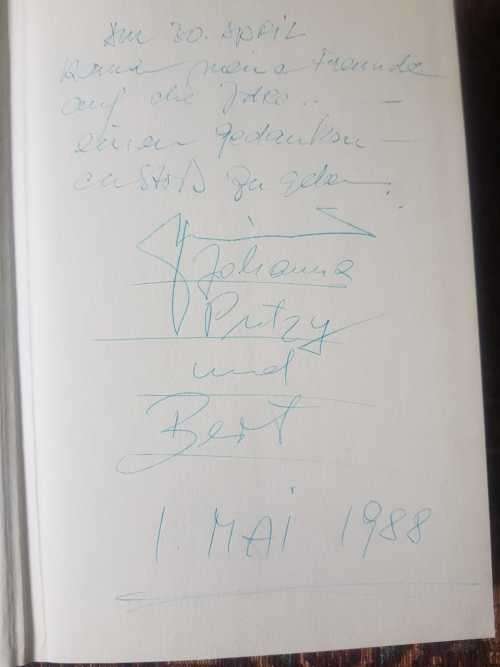 Am 30. APRIL
kamen meine Freunde
auf die Idee.. –
einen Gedanken –
anstoß zu geben.
Johanna
Putzy
und
Bert
1. MAI 1988